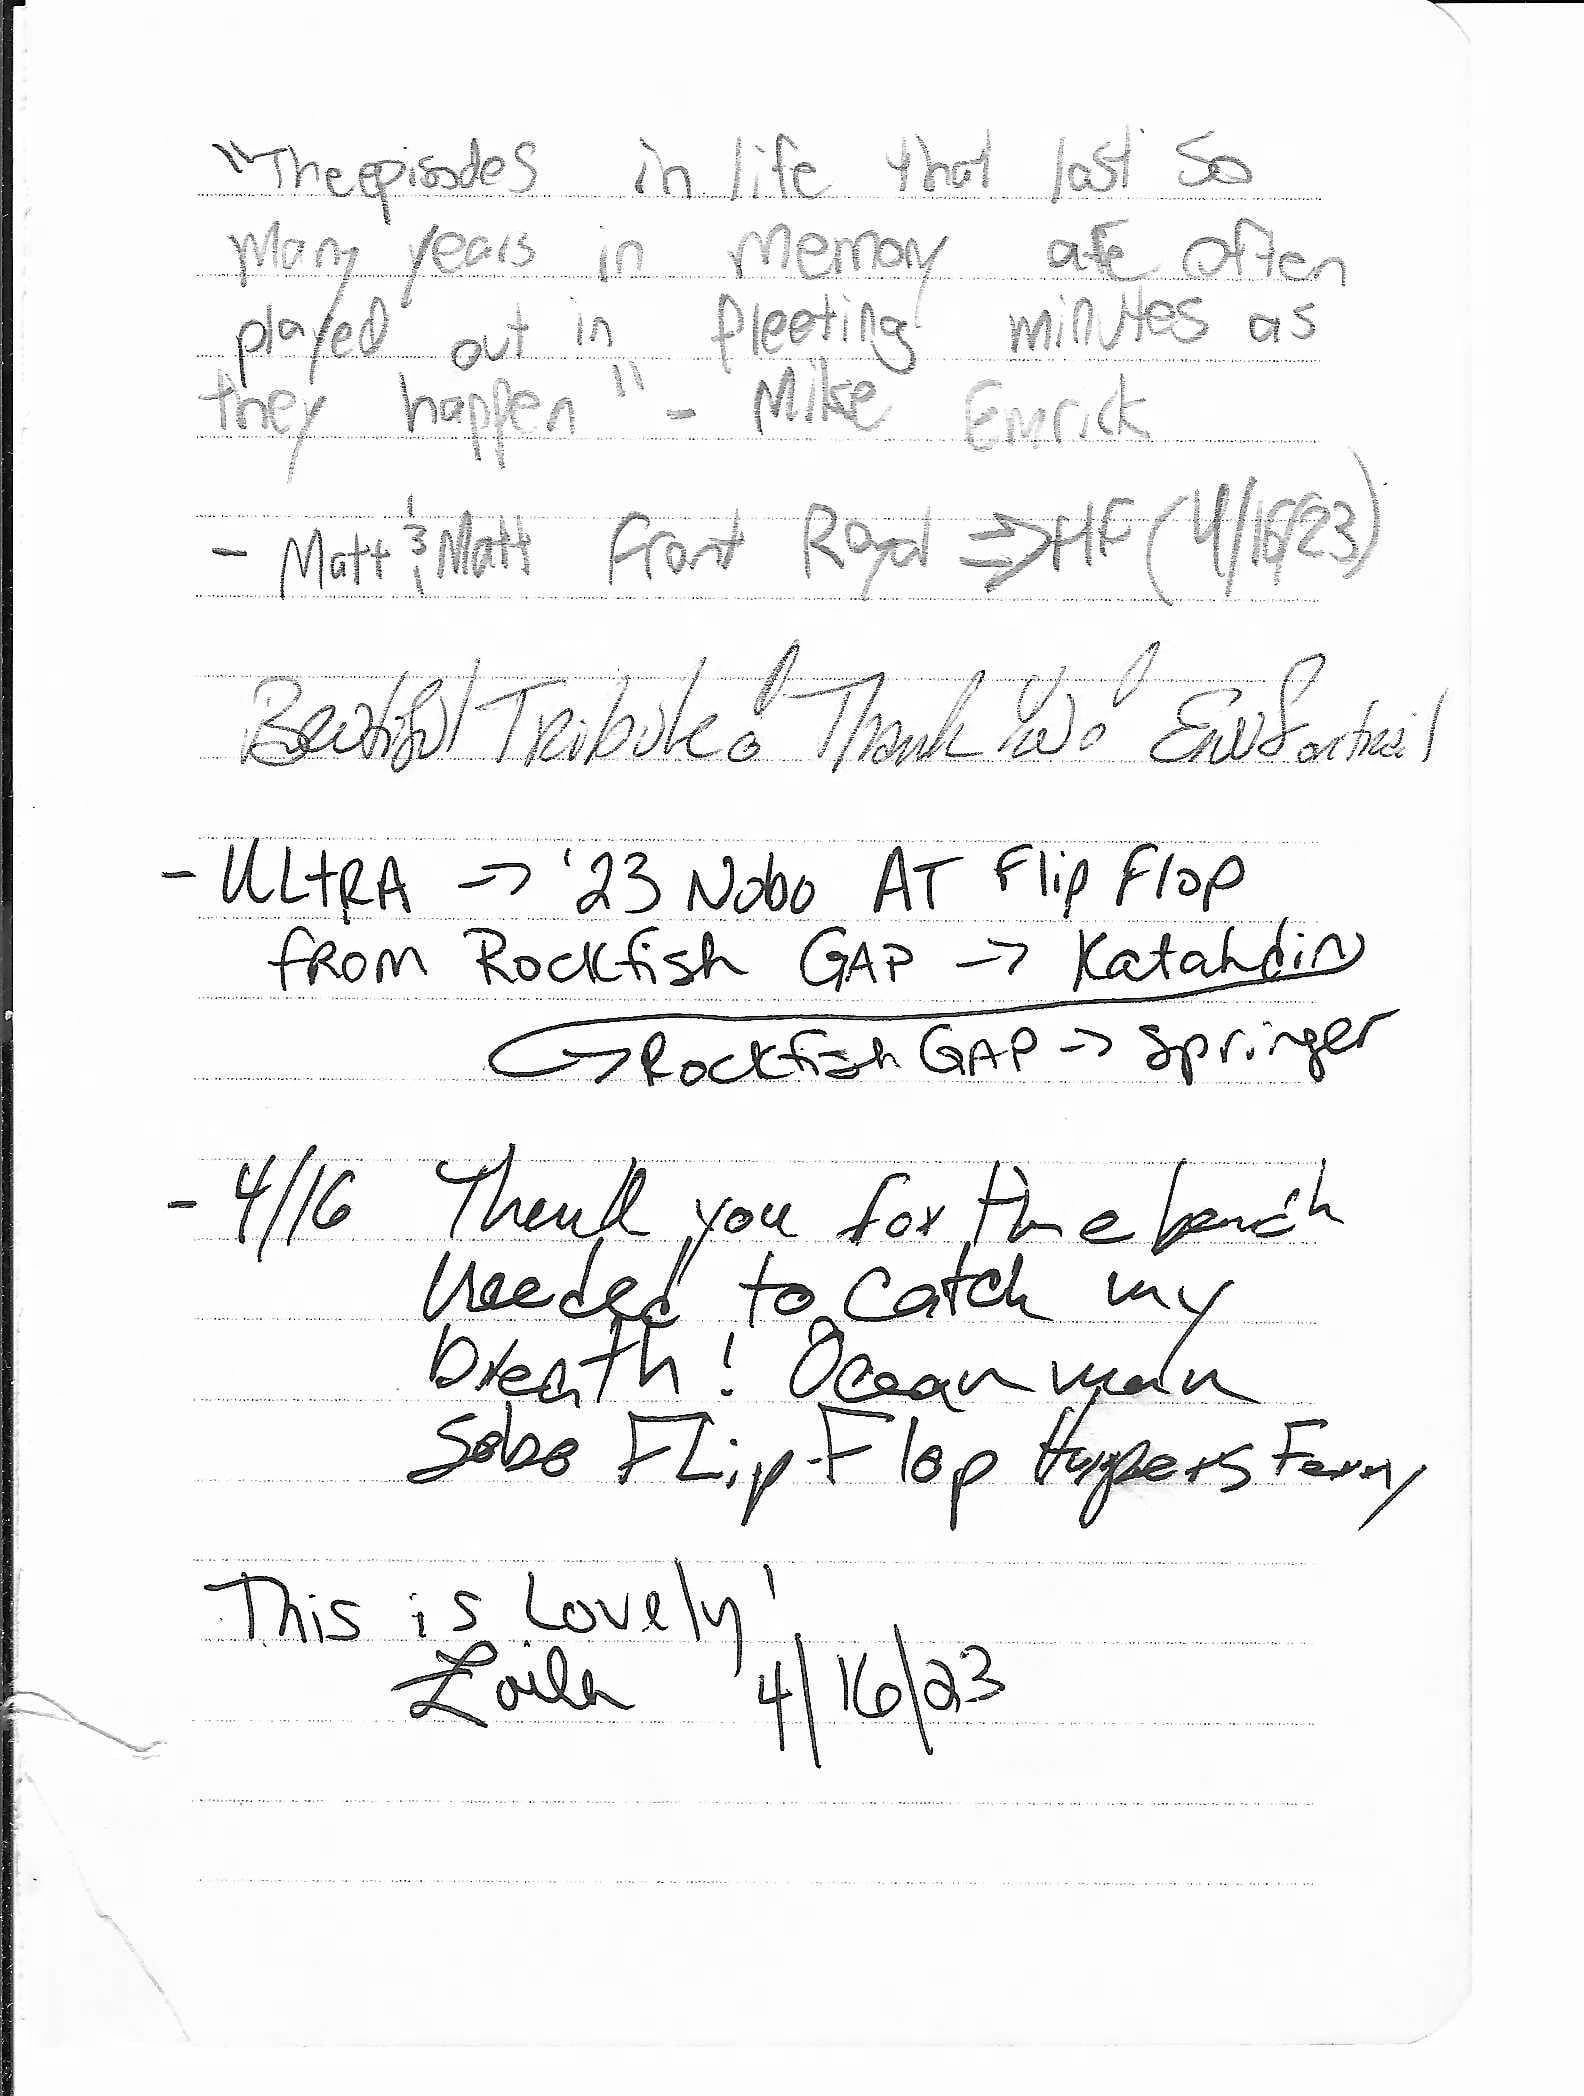 "The episodes in life that last so
many years in memory are often
played out in fleeting minutes as
they happen" - Mike Emrick
- Matt & Matt Front Royal => HF (4/16/23)
Beautiful Tribute! Thank You!
- ULtRA -> '23 Nobo AT Flip Flop
from Rockfish GAP -> Katahdin
-> Rockfish GAP -> Springer
- 4/16 Thank you for the bench
needed to catch my
breath! Oceanman
Sobo FLip-Flop Harpers Ferry
This is Lovely!
4/16/23